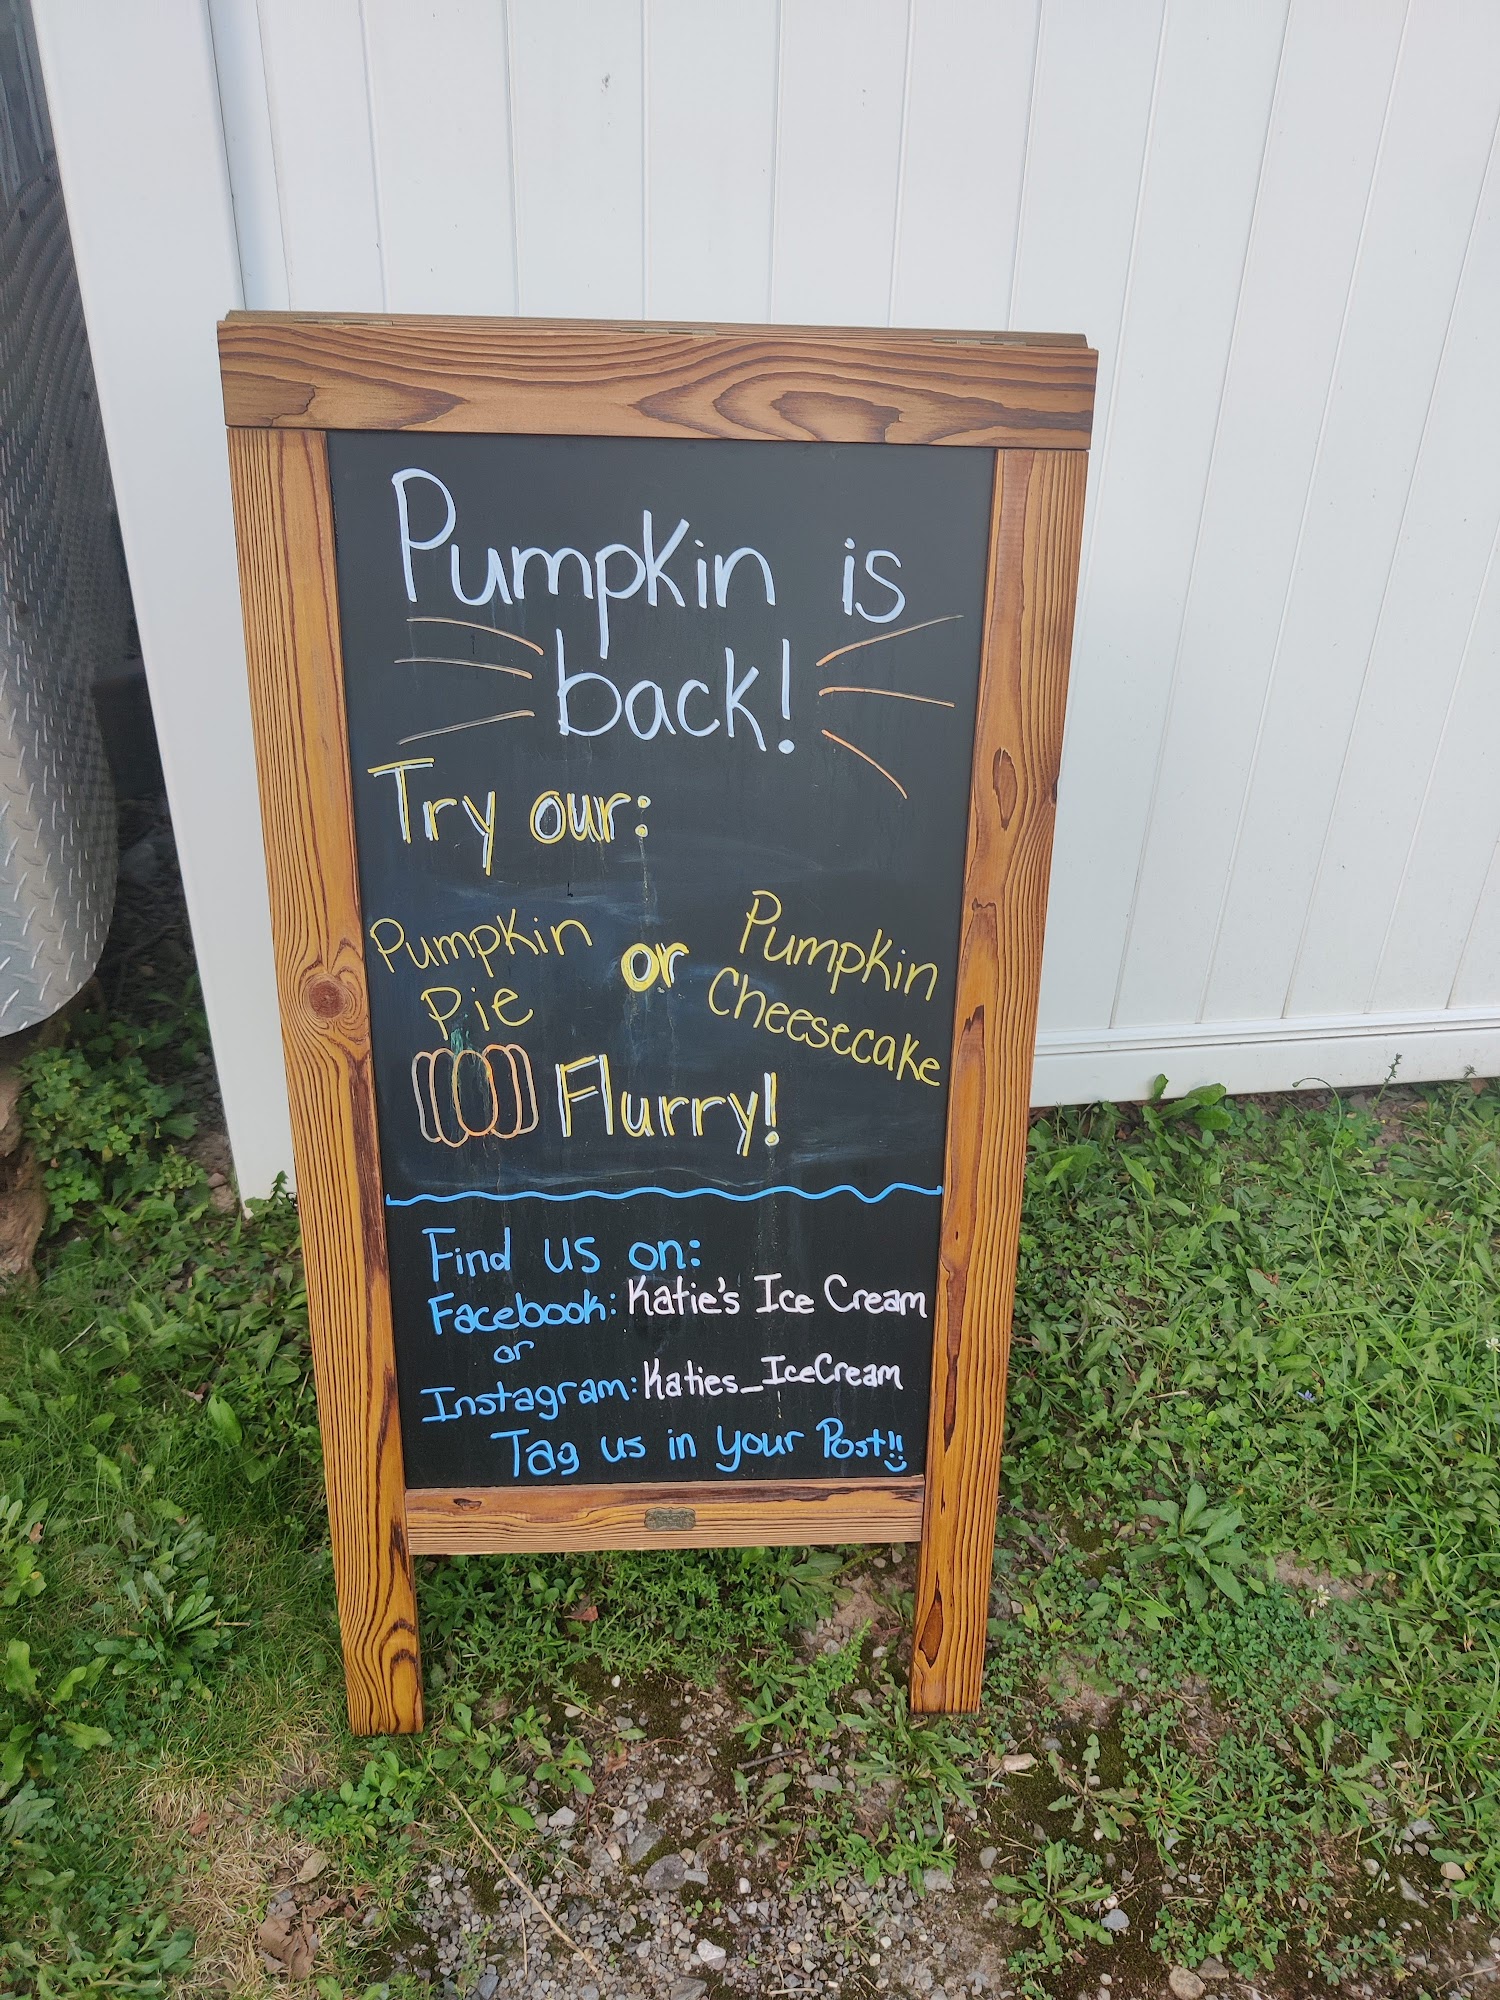 Pumpkin is
back!
Try our:
Pumpkin Pie
or
Pumpkin Cheesecake
Flurry!
Find us on:
Facebook: Katie's Ice Cream
or
Instagram: Katies_IceCream
Tag us in your Post!!